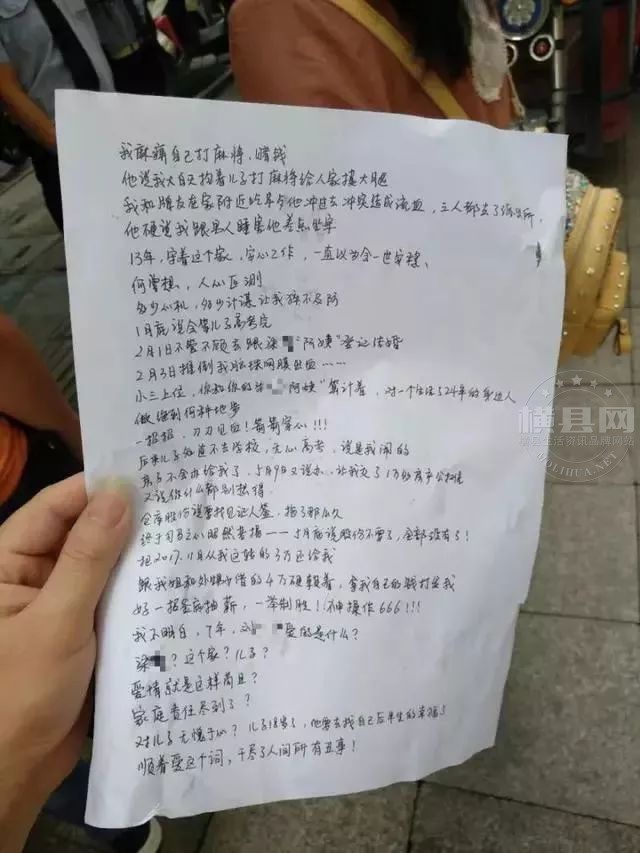 我麻痹自己打麻将，赌钱
他说我大白天抱着儿子打麻将给人家摸大腿
我和牌友在家附近吃早餐他冲进去冲突造成流血，三人都去了派出所，
他硬说我跟男人睡害他差点坐牢
13年，守着这个家，安心工作，一直以为会一世安稳、
何曾想，人心叵测
多少心机，多少计谋让我猝不及防
1月底说会等儿子高考完
2月1日不管不顾去跟梁 "阿姨"登记结婚
2月3日推倒我眼球网膜出血……
小三上位，你和你的梁 阿姨"算计着，对一个生活了24年的身边人
做得到何种地步
一招招，刀刀见血！箭箭穿心！！！
后来儿子知道不去学校，无心高考，说是我闹的
房子不会办给我了，5月9日又说办，让我交了1万的房产公证
又说你什么都别想得
仓库股份说要找见证人签，拖了那么久
终于司马之心昭然若揭——5月底说股份不要了，全部没有！
把2017.11月从我这转的3万还给我
跟我姐和外甥女借的4万硬赖着，拿我自己的钱打发我
好一招釜底抽薪，一举制胜！神操作666！！！
我不明白，7年，刘 爱的是什么？
梁 ？这个家？儿子？
爱情就是这样苟且？
家庭责任尽到了？
对儿子无愧于心？儿子18岁了，他要去找自己后半生的幸福了
顺着爱这个词，干尽了人间所有丑事！
横县网
横县生活资讯品牌网站
GOLIHUA.NET